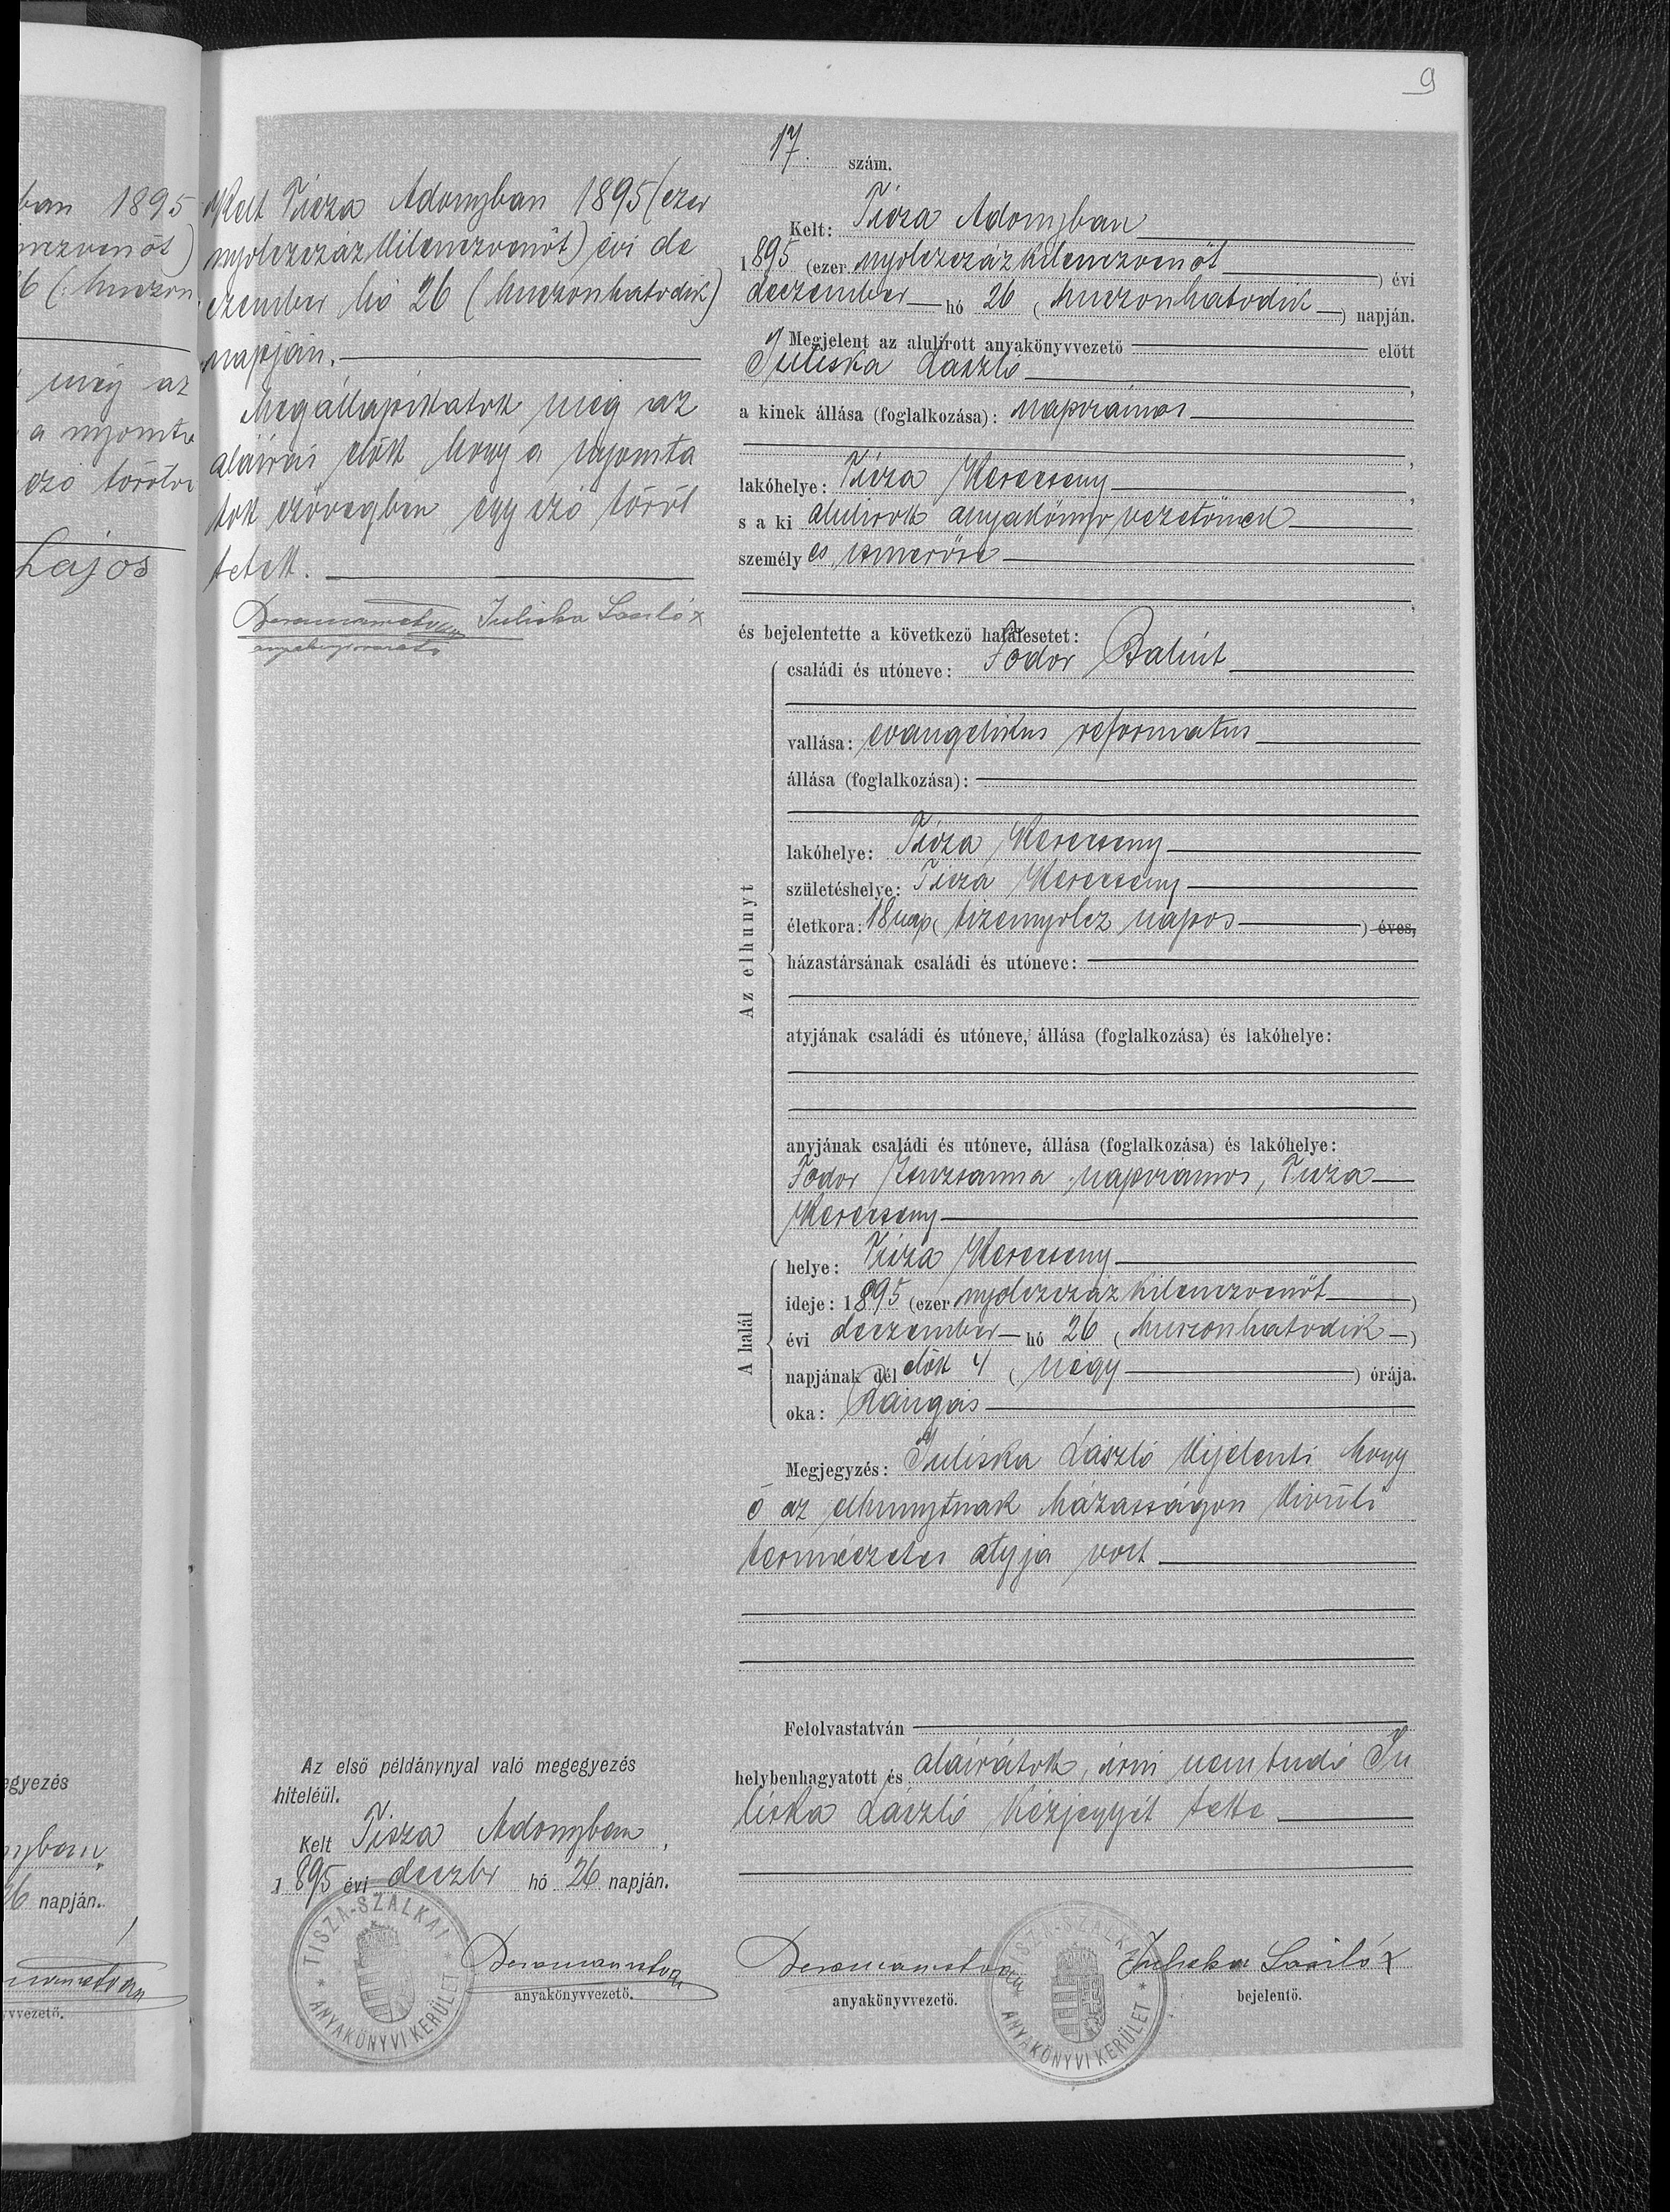 9
ban 1895
nezvenöt)
26 (: huszon
még az
a nyomta
szó törölte
Lajos
egyezés
nyban,
26 napján.
yvvezető.
Kelt Tisza Adonyban 1895 (ezer
nyolczszázkilenczvenöt) évi de
czember hó 26 (huszonhatodik)
napján.
Megállapittatott még az
aláirás előtt hogy a nyomta
tott szövegben egy szó töröl
tetett.
Juliska László x
anyakönyvvezető
17. szám.
Kelt: Tisza Adonyban
1895 (ezer nyolczszázkilenczvenöt) évi
deczember hó 26 (huszonhatodik) napján.
Megjelent az alulírott anyakönyvvezető előtt
Juliska László,
a kinek állása (foglalkozása): napszámos
,
lakóhelye: Tisza Kerecseny,
s a ki alulirott anyakönyvvezetőnek
személyes ismerőse
,
és bejelentette a következő halálesetet:
Az elhunyt
családi és utóneve: Fodor Balint
vallása: evangelikus reformatus
állása (foglalkozása):
lakóhelye: Tisza Kerecseny
születéshelye: Tisza Kerecseny
életkora: 18 nap (tizennyolcz napos) éves,
házastársának családi és utóneve:
atyjának családi és utóneve, állása (foglalkozása) és lakóhelye:
anyjának családi és utóneve, állása (foglalkozása) és lakóhelye:
Fodor Zsuzsanna napszámos, Tisza
Kerecseny
A halál
helye: Tisza Kerecseny
ideje: 1895 (ezer nyolczszázkilenczvenöt)
évi deczember hó 26 (huszonhatodik)
napjának dél előtt 4 (négy) órája.
oka: Rángás
Megjegyzés: Juliska László kijelenti hogy
ő az elhunytnak házasságon kivüli
természetes atyja volt
Felolvastatván
helybenhagyatott és aláirátott, irni nem tudó Ju
liska László kézjegyét tette
anyakönyvvezető.
Juliska László x
bejelentő.
Az első példánynyal való megegyezés
hiteléül.
Kelt Tisza Adonyban,
1895 évi deczbr hó 26 napján.
anyakönyvvezető.
TISZA-SZALKAI * ANYAKÖNYVI KERÜLET *
TISZA-SZALKAI * ANYAKÖNYVI KERÜLET *